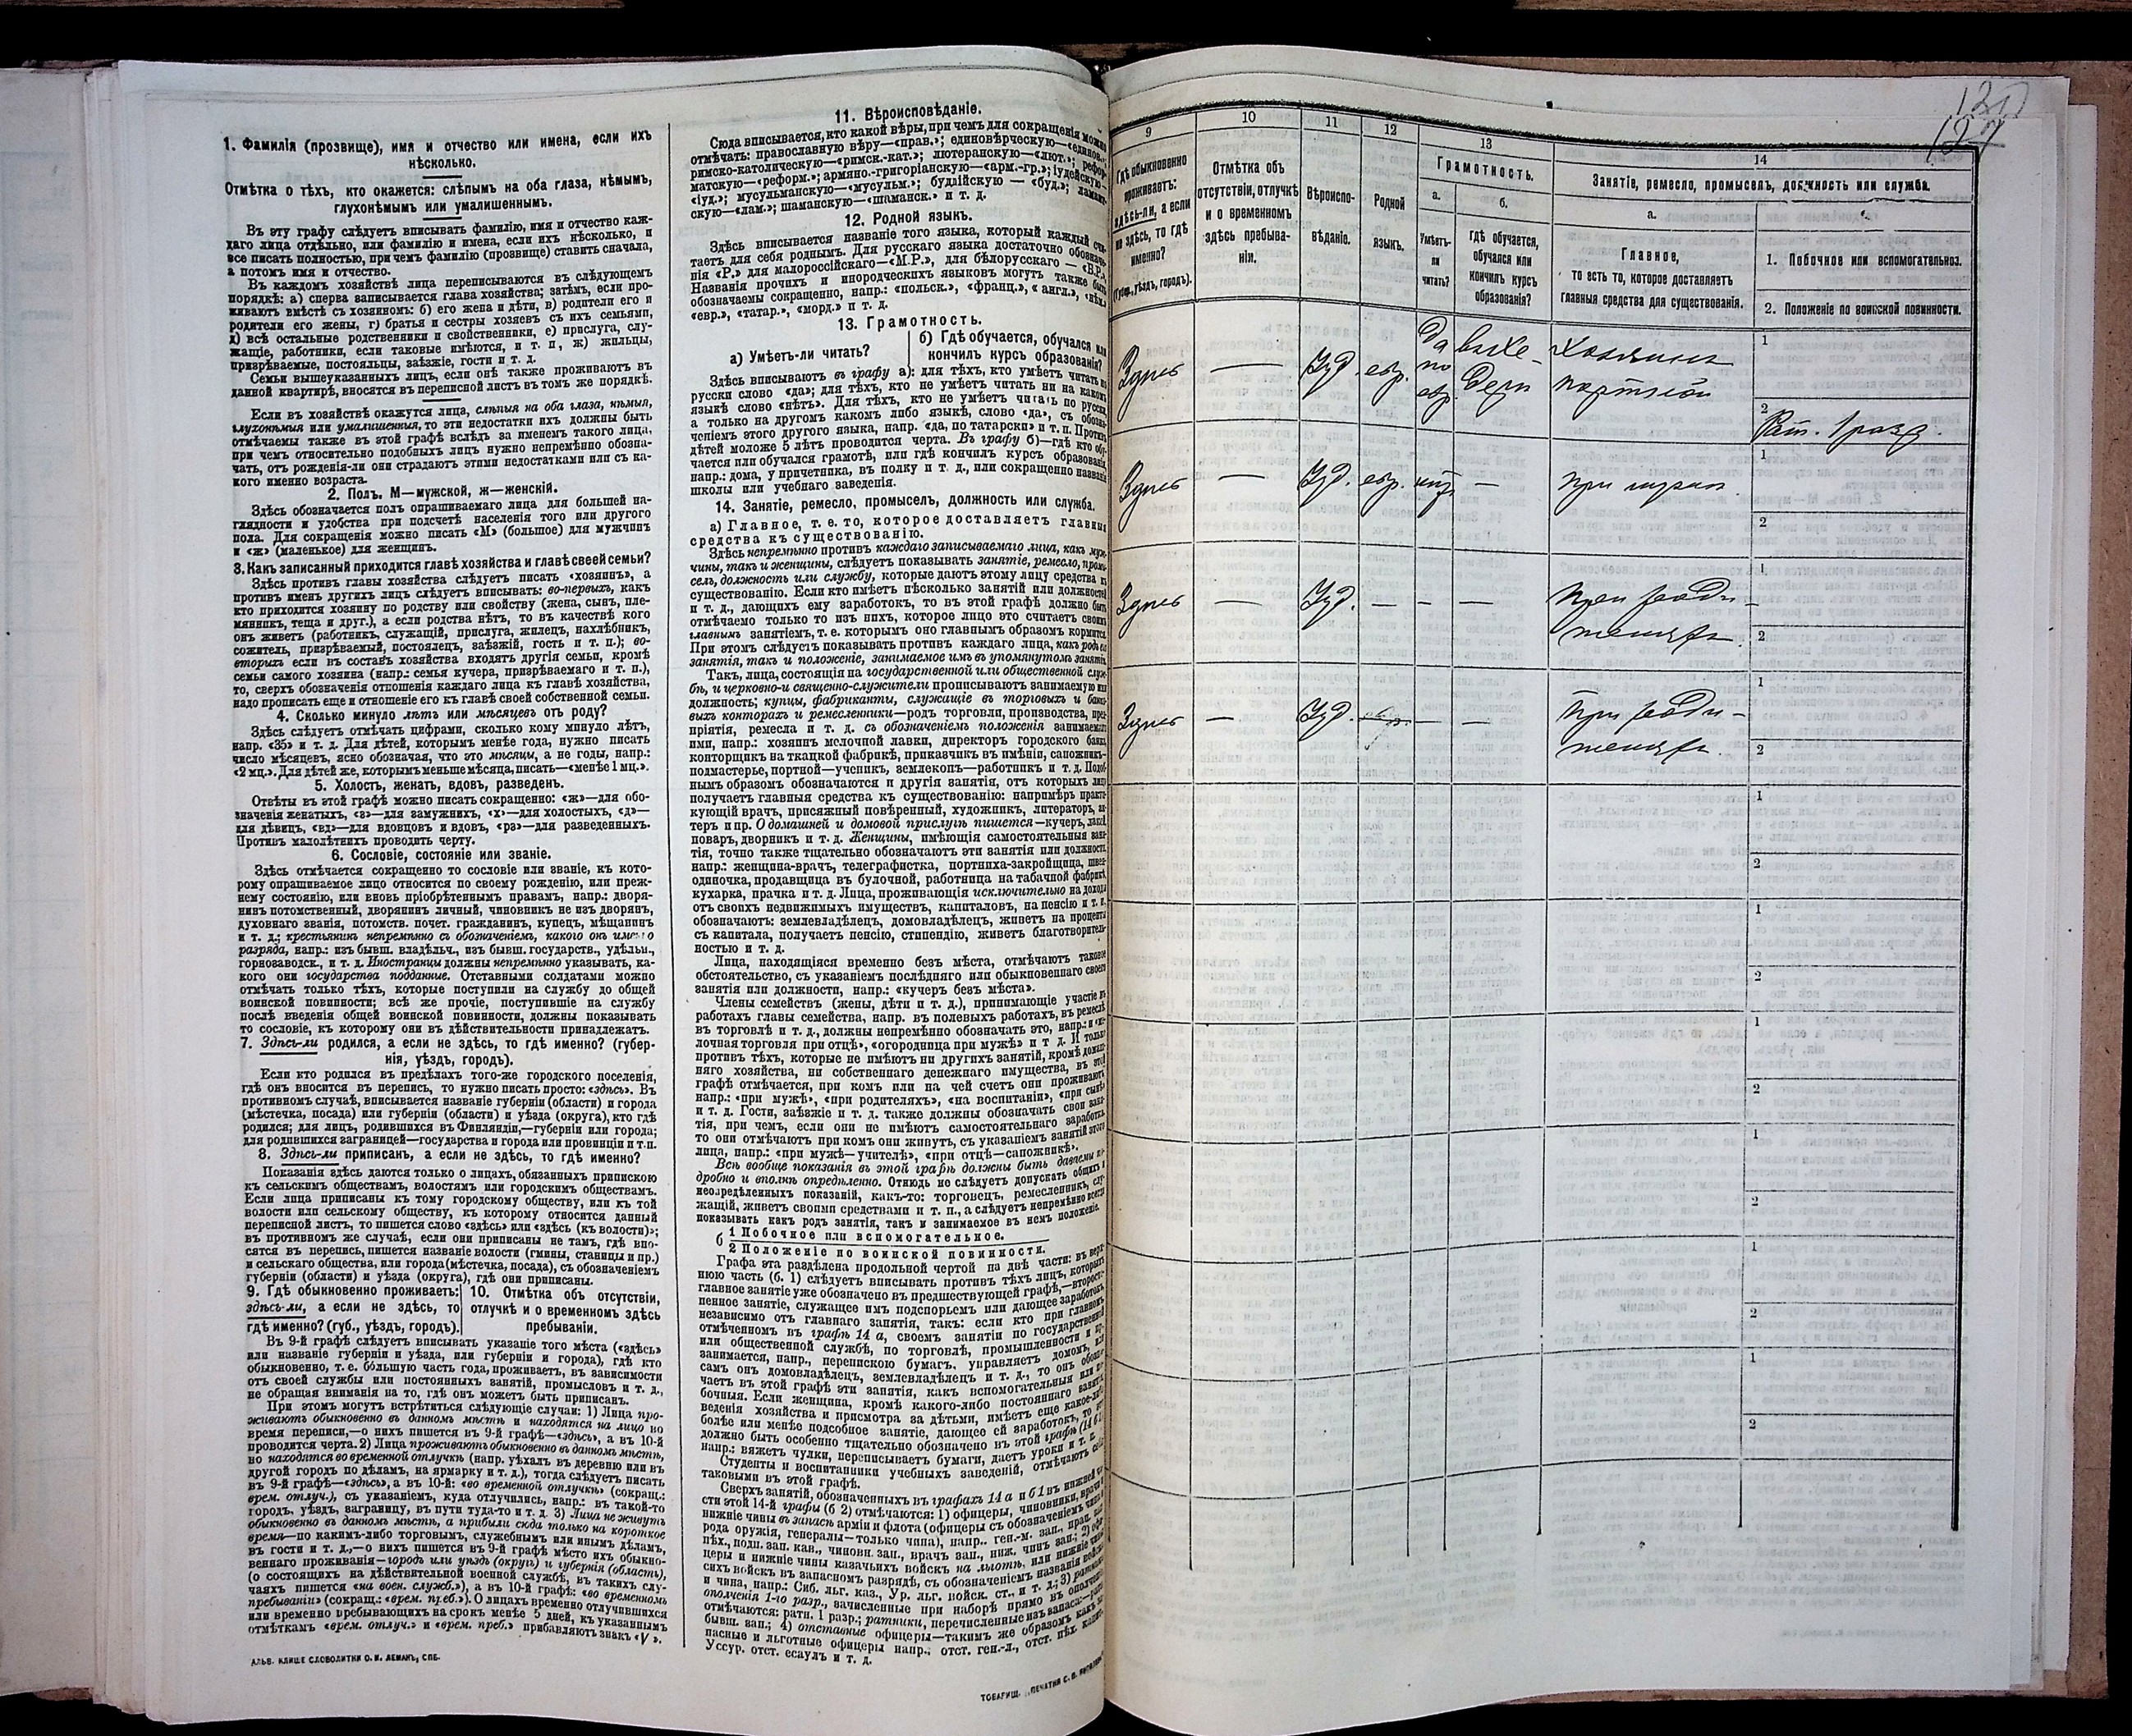 1. Фамилія (прозвище), имя и отчество или имена, если ихъ
нѣсколько.
Отмѣтка о тѣхъ, кто окажется: слѣпымъ на оба глаза, нѣмымъ,
глухонѣмымъ или умалишеннымъ.
Въ эту графу слѣдуетъ вписывать фамилію, имя и отчество каж-
даго лица отдѣльно, или фамилію и имена, если ихъ нѣсколько, и
все писать полностью, при чемъ фамилію (прозвище) ставить сначала,
а потомъ имя и отчество.
Въ каждомъ хозяйствѣ лица переписываются въ слѣдующемъ
порядкѣ: а) сперва записывается глава хозяйства; затѣмъ, если про-
живаютъ вмѣстѣ съ хозяиномъ: б) его жена и дѣти, в) родители его и
родители его жены, г) братья и сестры хозяевъ съ ихъ семьями,
д) всѣ остальные родственники и свойственники, е) прислуга, слу-
жащіе, работники, если таковые имѣются, и т. п., ж) жильцы,
призрѣваемые, постояльцы, заѣзжіе, гости и т. д.
Семьи вышеуказанныхъ лицъ, если онѣ также проживаютъ въ
данной квартирѣ, вносятся въ переписной листъ въ томъ же порядкѣ.
Если въ хозяйствѣ окажутся лица, слѣпыя на оба глаза, нѣмыя,
глухонѣмыя или умалишенныя, то эти недостатки ихъ должны быть
отмѣчаемы также въ этой графѣ вслѣдъ за именемъ такого лица,
при чемъ относительно подобныхъ лицъ нужно непремѣнно обозна-
чать, отъ рожденія-ли они страдаютъ этими недостатками или съ ка-
кого именно возраста.
2. Полъ. М—мужской, ж—женскій.
Здѣсь обозначается полъ опрашиваемаго лица для большей на-
глядности и удобства при подсчетѣ населенія того или другого
пола. Для сокращенія можно писать «М» (большое) для мужчинъ
и «ж» (маленькое) для женщинъ.
3. Какъ записанный приходится главѣ хозяйства и главѣ своей семьи?
Здѣсь противъ главы хозяйства слѣдуетъ писать «хозяинъ», а
противъ именъ другихъ лицъ слѣдуетъ вписывать: во-первыхъ, какъ
кто приходится хозяину по родству или свойству (жена, сынъ, пле-
мянникъ, теща и друг.), а если родства нѣтъ, то въ качествѣ кого
онъ живетъ (работникъ, служащій, прислуга, жилецъ, нахлѣбникъ,
сожитель, призрѣваемый, постоялецъ, заѣзжій, гость и т. п.); во-
вторыхъ если въ составъ хозяйства входятъ другія семьи, кромѣ
семьи самого хозяина (напр.: семья кучера, призрѣваемаго и т. п.),
то, сверхъ обозначенія отношенія каждаго лица къ главѣ хозяйства,
надо прописать еще и отношеніе его къ главѣ своей собственной семьи.
4. Сколько минуло лѣтъ или мѣсяцевъ отъ роду?
Здѣсь слѣдуетъ отмѣчать цифрами, сколько кому минуло лѣтъ,
напр. «35» и т. д. Для дѣтей, которымъ менѣе года, нужно писать
число мѣсяцевъ, ясно обозначая, что это мѣсяцы, а не годы, напр.:
«2 мц.». Для дѣтей же, которымъ меньше мѣсяца, писать—«менѣе 1 мц.».
5. Холостъ, женатъ, вдовъ, разведенъ.
Отвѣты въ этой графѣ можно писать сокращенно: «ж»—для обо-
значенія женатыхъ, «з»—для замужнихъ, «х»—для холостыхъ, «д»—
для дѣвицъ, «вд»—для вдовцовъ и вдовъ, «рз»—для разведенныхъ.
Противъ малолѣтнихъ проводить черту.
6. Сословіе, состояніе или званіе.
Здѣсь отмѣчается сокращенно то сословіе или званіе, къ кото-
рому опрашиваемое лицо относится по своему рожденію, или преж-
нему состоянію, или вновь пріобрѣтеннымъ правамъ, напр.: дворя-
нинъ потомственный, дворянинъ личный, чиновникъ не изъ дворянъ,
духовнаго званія, потомств. почет. гражданинъ, купецъ, мѣщанинъ
и т. д.; крестьянинъ непремѣнно съ обозначеніемъ, какого онъ именно
разряда, напр.: изъ бывш. владѣльч., изъ бывш. государств., удѣльн.,
горнозаводск., и т. д. Иностранцы должны непремѣнно указывать, ка-
кого они государства подданные. Отставными солдатами можно
отмѣчать только тѣхъ, которые поступили на службу до общей
воинской повинности; всѣ же прочіе, поступившіе на службу
послѣ введенія общей воинской повинности, должны показывать
то сословіе, къ которому они въ дѣйствительности принадлежатъ.
7. Здѣсь-ли родился, а если не здѣсь, то гдѣ именно? (губер-
нія, уѣздъ, городъ).
Если кто родился въ предѣлахъ того-же городского поселенія,
гдѣ онъ вносится въ перепись, то нужно писать просто: «здѣсь». Въ
противномъ случаѣ, вписывается названіе губерніи (области) и города
(мѣстечка, посада) или губерніи (области) и уѣзда (округа), кто гдѣ
родился; для лицъ, родившихся въ Финляндіи,—губерніи или города;
для родившихся заграницей—государства и города или провинціи и т. п.
8. Здѣсь-ли приписанъ, а если не здѣсь, то гдѣ именно?
Показанія здѣсь даются только о лицахъ, обязанныхъ припискою
къ сельскимъ обществамъ, волостямъ или городскимъ обществамъ.
Если лица приписаны къ тому городскому обществу, или къ той
волости или сельскому обществу, къ которому относится данный
переписной листъ, то пишется слово «здѣсь» или «здѣсь (къ волости)»;
въ противномъ же случаѣ, если они приписаны не тамъ, гдѣ вно-
сятся въ перепись, пишется названіе волости (гмины, станицы и пр.)
и сельскаго общества, или города (мѣстечка, посада), съ обозначеніемъ
губерніи (области) и уѣзда (округа), гдѣ они приписаны.
9. Гдѣ обыкновенно проживаетъ:
здѣсь-ли, а если не здѣсь, то
гдѣ именно? (губ., уѣздъ, городъ).
10. Отмѣтка объ отсутствіи,
отлучкѣ и о временномъ здѣсь
пребываніи.
Въ 9-й графѣ слѣдуетъ вписывать указаніе того мѣста («здѣсь»
или названіе губерніи и уѣзда, или губерніи и города), гдѣ кто
обыкновенно, т. е. бо́льшую часть года, проживаетъ, въ зависимости
отъ своей службы или постоянныхъ занятій, промысловъ и т. д.,
не обращая вниманія на то, гдѣ онъ можетъ быть приписанъ.
При этомъ могутъ встрѣтиться слѣдующіе случаи: 1) Лица про-
живаютъ обыкновенно въ данномъ мѣстѣ и находятся на лицо во
время переписи,—о нихъ пишется въ 9-й графѣ—«здѣсь», а въ 10-й
проводится черта. 2) Лица проживаютъ обыкновенно въ данномъ мѣстѣ,
но находятся во временной отлучкѣ (напр. уѣхалъ въ деревню или въ
другой городъ по дѣламъ, на ярмарку и т. д.), тогда слѣдуетъ писать
въ 9-й графѣ—«здѣсь», а въ 10-й: «во временной отлучкѣ» (сокращ.:
врем. отлуч.), съ указаніемъ, куда отлучились, напр.: въ такой-то
городъ, уѣздъ, заграницу, въ пути туда-то и т. д. 3) Лица не живутъ
обыкновенно въ данномъ мѣстѣ, а прибыли сюда только на короткое
время—по какимъ-либо торговымъ, служебнымъ или инымъ дѣламъ,
въ гости и т. д.,—о нихъ пишется въ 9-й графѣ мѣсто ихъ обыкно-
веннаго проживанія—городъ или уѣздъ (округъ) и губернія (область),
(о состоящихъ на дѣйствительной военной службѣ, въ такихъ слу-
чаяхъ пишется «на воен. службѣ»), а въ 10-й графѣ: «во временномъ
пребываніи» (сокращ.: «врем. преб.»). О лицахъ временно отлучившихся
или временно пребывающихъ на срокъ менѣе 5 дней, къ указаннымъ
отмѣткамъ «врем. отлуч.» и «врем. преб.» прибавляютъ знакъ «V».
АЛЬВ. КЛИШЕ СЛОВОЛИТНИ О. И. ЛЕМАНЪ, СПБ.
11. Вѣроисповѣданіе.
Сюда вписывается, кто какой вѣры, при чемъ для сокращенія можно
отмѣчать: православную вѣру—«прав.»; единовѣрческую—«единов.»;
римско-католическую—«римск.-кат.»; лютеранскую—«лют.»; рефор-
матскую—«реформ.»; армяно.-григоріанскую—«арм.-гр.»; іудейскую—
«іуд.»; мусульманскую—«мусульм.»; буддійскую — «буд.»; ламай-
скую—«лам.»; шаманскую—«шаманск.» и т. д.
12. Родной языкъ.
Здѣсь вписывается названіе того языка, который каждый счи-
таетъ для себя роднымъ. Для русскаго языка достаточно обозначе-
нія «Р.» для малороссійскаго—«М.Р.», для бѣлорусскаго — «Б.Р.».
Названія прочихъ и инородческихъ языковъ могутъ также быть
обозначаемы сокращенно, напр.: «польск.», «франц.», «англ.», «нѣм.»
«евр.», «татар.», «морд.» и т. д.
13. Грамотность.
а) Умѣетъ-ли читать?
б) Гдѣ обучается, обучался или
кончилъ курсъ образованія?
Здѣсь вписываютъ въ графу а): для тѣхъ, кто умѣетъ читать по
русски слово «да»; для тѣхъ, кто не умѣетъ читать ни на какомъ
языкѣ слово «нѣтъ». Для тѣхъ, кто не умѣетъ читать по русски,
а только на другомъ какомъ либо языкѣ, слово «да», съ обозна-
ченіемъ этого другого языка, напр. «да, по татарски» и т. п. Противъ
дѣтей моложе 5 лѣтъ проводится черта. Въ графу б)—гдѣ кто обу-
чается или обучался грамотѣ, или гдѣ кончилъ курсъ образованія,
напр.: дома, у причетника, въ полку и т. д., или сокращенно названіе
школы или учебнаго заведенія.
14. Занятіе, ремесло, промыселъ, должность или служба.
а) Главное, т. е. то, которое доставляетъ главныя
средства къ существованію.
Здѣсь непремѣнно противъ каждаго записываемаго лица, какъ муж-
чины, такъ и женщины, слѣдуетъ показывать занятіе, ремесло, промы-
селъ, должность или службу, которые даютъ этому лицу средства къ
существованію. Если кто имѣетъ нѣсколько занятій или должностей
и т. д., дающихъ ему заработокъ, то въ этой графѣ должно быть
отмѣчаемо только то изъ нихъ, которое лицо это считаетъ своимъ
главнымъ занятіемъ, т. е. которымъ оно главнымъ образомъ кормится.
При этомъ слѣдуетъ показывать противъ каждаго лица, какъ родъ его
занятія, такъ и положеніе, занимаемое имъ въ упомянутомъ занятіи.
Такъ, лица, состоящія на государственной или общественной служ-
бѣ, и церковно-и священно-служители прописываютъ занимаемую ими
должность; купцы, фабриканты, служащіе въ торговыхъ и банко-
выхъ конторахъ и ремесленники—родъ торговли, производства, пред-
пріятія, ремесла и т. д. съ обозначеніемъ положенія занимаемаго
ими, напр.: хозяинъ мелочной лавки, директоръ городского банка,
конторщикъ на ткацкой фабрикѣ, приказчикъ въ имѣніи, сапожникъ-
подмастерье, портной—ученикъ, землекопъ—работникъ и т. д. Подоб-
нымъ образомъ обозначаются и другія занятія, отъ которыхъ лица
получаетъ главныя средства къ существованію: напримѣръ практи-
кующій врачъ, присяжный повѣренный, художникъ, литераторъ, ак-
теръ и пр. О домашней и домовой прислугѣ пишется—кучеръ, лакей,
поваръ, дворникъ и т. д. Женщины, имѣющія самостоятельныя заня-
тія, точно также тщательно обозначаютъ эти занятія или должности,
напр.: женщина-врачъ, телеграфистка, портниха-закройщица, швея-
одиночка, продавщица въ булочной, работница на табачной фабрикѣ,
кухарка, прачка и т. д. Лица, проживающія исключительно на доходы
отъ своихъ недвижимыхъ имуществъ, капиталовъ, на пенсію и т. п.
обозначаютъ: землевладѣлецъ, домовладѣлецъ, живетъ на проценты
съ капитала, получаетъ пенсію, стипендію, живетъ благотворитель-
ностью и т. д.
Лица, находящіяся временно безъ мѣста, отмѣчаютъ таковое
обстоятельство, съ указаніемъ послѣдняго или обыкновеннаго своего
занятія или должности, напр.: «кучеръ безъ мѣста».
Члены семействъ (жены, дѣти и т. д.), принимающіе участіе въ
работахъ главы семейства, напр. въ полевыхъ работахъ, въ ремеслѣ
въ торговлѣ и т. д., должны непремѣнно обозначать это, напр.: «ме-
лочная торговля при отцѣ», «огородница при мужѣ» и т. д. И только
противъ тѣхъ, которые не имѣютъ ни другихъ занятій, кромѣ домаш-
няго хозяйства, ни собственнаго денежнаго имущества, въ этой
графѣ отмѣчается, при комъ или на чей счетъ они проживаютъ
напр.: «при мужѣ», «при родителяхъ», «на воспитаніи», «при сынѣ»
и т. д. Гости, заѣзжіе и т. д. также должны обозначать свои заня-
тія, при чемъ, если они не имѣютъ самостоятельнаго заработка,
то они отмѣчаютъ при комъ они живутъ, съ указаніемъ занятій этого
лица, напр.: «при мужѣ—учителѣ», «при отцѣ—сапожникѣ».
Всѣ вообще показанія въ этой графѣ должны быть даваемы по-
дробно и вполнѣ опредѣленно. Отнюдь не слѣдуетъ допускать общихъ и
неопредѣленныхъ показаній, какъ-то: торговецъ, ремесленникъ, слу-
жащій, живетъ своими средствами и т. п., а слѣдуетъ непремѣнно всегда
показывать какъ родъ занятія, такъ и занимаемое въ немъ положеніе.
б 1 Побочное или вспомогательное.
2 Положеніе по воинской повинности.
Графа эта раздѣлена продольной чертой на двѣ части: въ верх-
нюю часть (б. 1) слѣдуетъ вписывать противъ тѣхъ лицъ, которыхъ
главное занятіе уже обозначено въ предшествующей графѣ,—второсте-
пенное занятіе, служащее имъ подспорьемъ или дающее заработокъ
независимо отъ главнаго занятія, такъ: если кто при главномъ
отмѣченномъ въ графѣ 14 а, своемъ занятіи по государственной
или общественной службѣ, по торговлѣ, промышленности и пр.
занимается, напр., перепискою бумагъ, управляетъ домомъ, или
самъ онъ домовладѣлецъ, землевладѣлецъ и т. д., то онъ обозна-
чаетъ въ этой графѣ эти занятія, какъ вспомогательныя или по-
бочныя. Если женщина, кромѣ какого-либо постояннаго занятія,
веденія хозяйства и присмотра за дѣтьми, имѣетъ еще какое-либо
болѣе или менѣе подсобное занятіе, дающее ей заработокъ, то это
должно быть особенно тщательно обозначено въ этой графѣ (14 б 1)
напр.: вяжетъ чулки, переписываетъ бумаги, даетъ уроки и т. п.
Студенты и воспитанники учебныхъ заведеній, отмѣчаютъ себя
таковыми въ этой графѣ.
Сверхъ занятій, обозначенныхъ въ графахъ 14 а и б 1 въ нижней ча-
сти этой 14-й графы (б 2) отмѣчаются: 1) офицеры, чиновники, врачи и
нижніе чины въ запасѣ арміи и флота (офицеры съ обозначеніемъ чина и
рода оружія, генералы—только чина), напр.. ген.-м. зап., прап. зап.
пѣх., подп. зап. кав., чиновн. зап., врачъ зап., ниж. чинъ зап.; 2) офи-
церы и нижніе чины казачьихъ войскъ на льготѣ, или нижніе чины
сихъ войскъ въ запасномъ разрядѣ, съ обозначеніемъ названія войска
и чина, напр.: Сиб. льг. каз., Ур. льг. войск. ст., и т. д.; 3) ратники
ополченія 1-го разр., зачисленные при наборѣ прямо въ ополченіе
отмѣчаются: ратн. 1 разр.; ратники, перечисленные изъ запаса:—ратн.
бывш. зап.; 4) отставные офицеры—такимъ же образомъ какъ за-
пасные и льготные офицеры напр.; отст. ген.-л., отст. пѣх. капит.,
Уссур. отст. есаулъ и т. д.
9
10
11
12
13
14
Гдѣ обыкновенно
проживаетъ:
здѣсь-ли, а если
не здѣсь, то гдѣ
именно?
(Губер., уѣздъ, городъ).
Отмѣтка объ
отсутствіи, отлучкѣ
и о временномъ
здѣсь пребыва-
ніи.
Вѣроиспо-
вѣданіе.
Родной
языкъ.
Грамотность.
а.
Умѣетъ-
ли
читать?
б.
Гдѣ обучается,
обучался или
кончилъ курсъ
образованія?
Занятіе, ремесло, промыселъ, должность или служба.
а.
Главное,
то есть то, которое доставляетъ
главныя средства для существованія.
1. Побочное или вспомогательное.
2. Положеніе по воинской повинности.
Здѣсь — Іуд. евр. Да по евр. въ хе-дерѣ Хозяинъ портной
1
2 Рат. 1 разр.
Здѣсь — Іуд. евр. нѣтъ — при мужѣ
1
2
Здѣсь — Іуд. — — — при роди-
теляхъ
1
2
Здѣсь — Іуд. — — при роди-
теляхъ
1
2
1
2
1
2
1
2
1
2
1
2
1
2
127